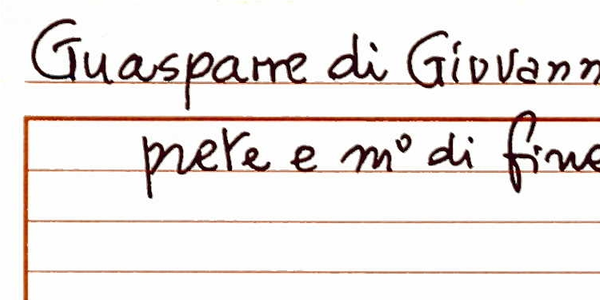 Guasparre di Giovann
prete e mº di fine